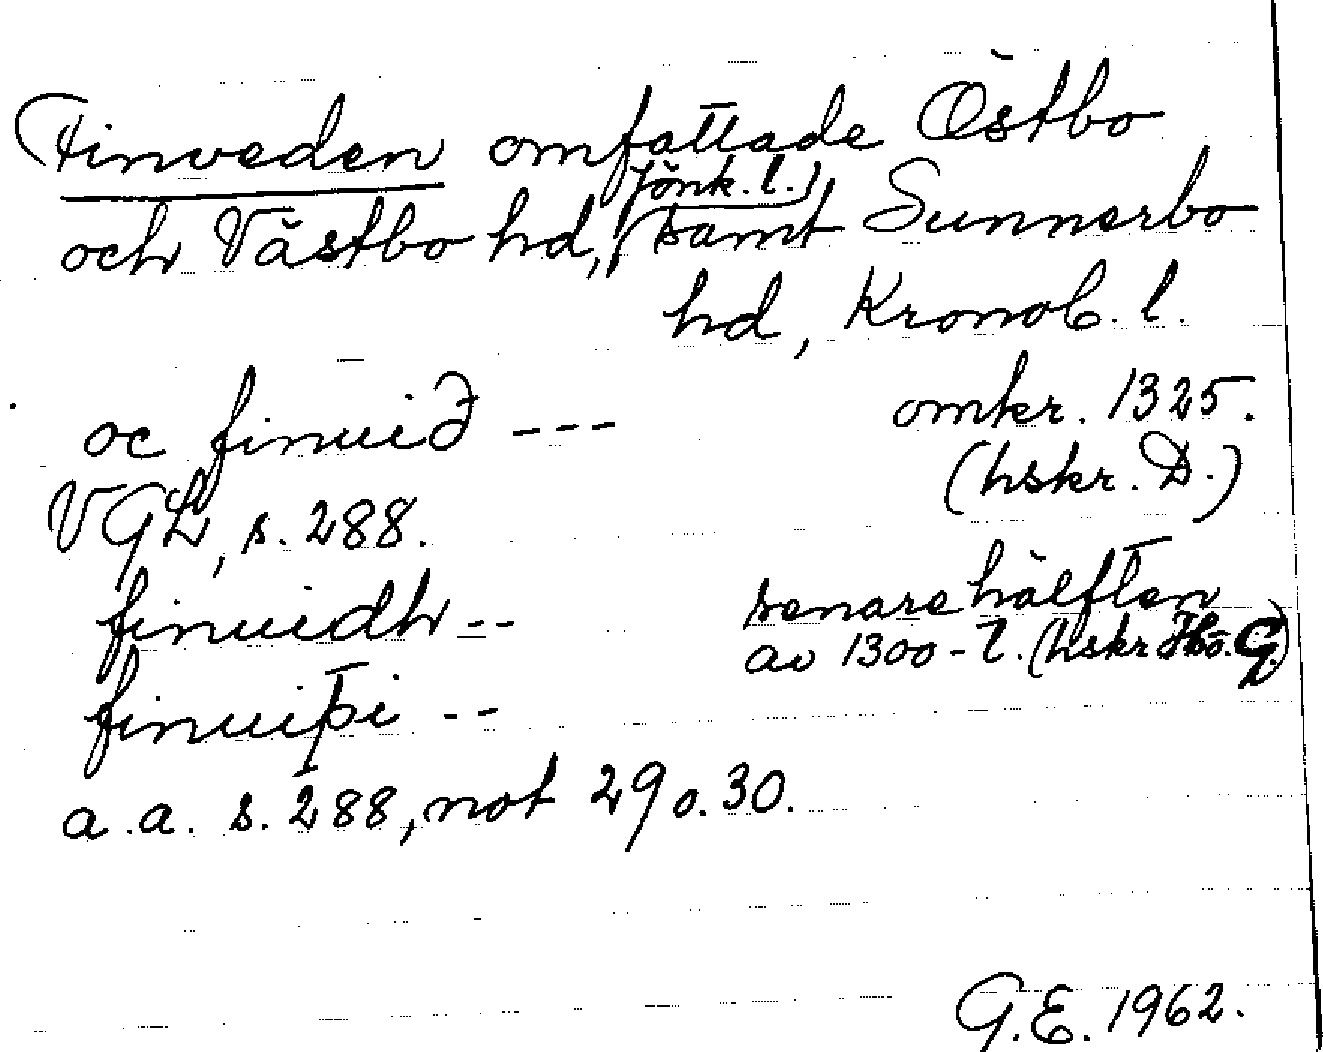 Finveden omfattade Östbo
och Västbo hd, (Jönk. l.) samt Sunnerbo
hd, Kronob. l.
oc finuið --- omkr. 1325.
(hskr. D.)
VGL, s. 288.
finuidh -- senare hälften
av 1300-t. (hskr H o. G.)
finuiþi --
a.a. s. 288, not 29 o. 30.
G.E. 1962.